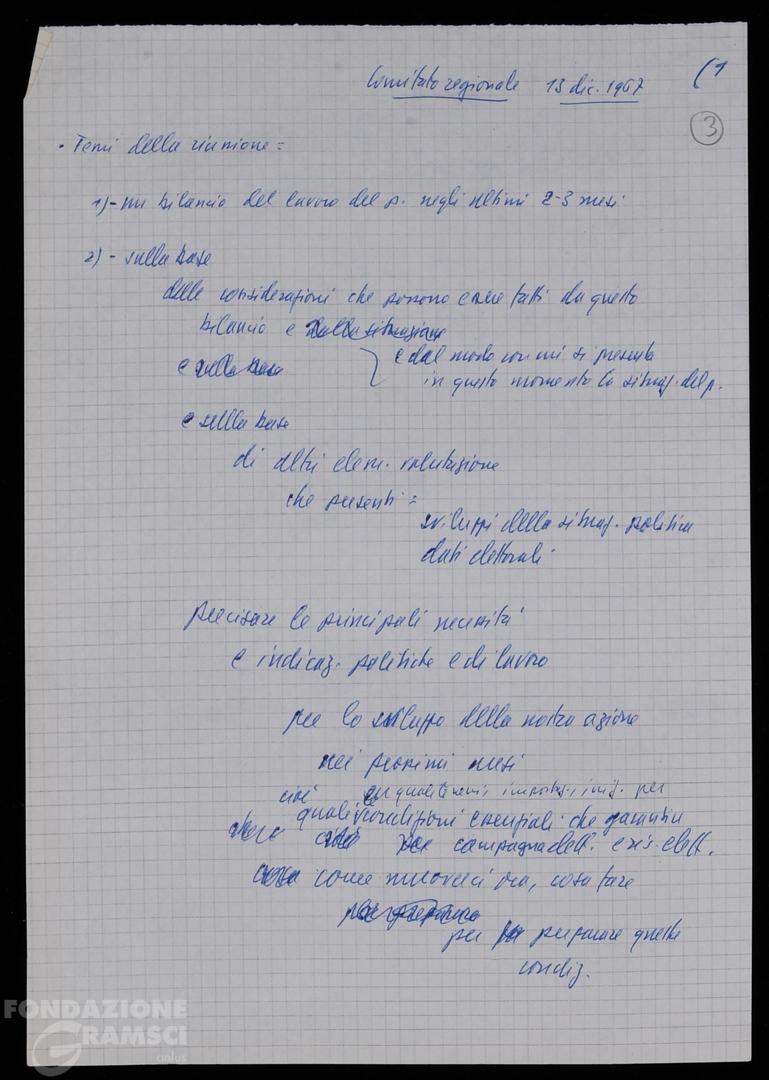 Comitato regionale 13 dic. 1967 (1
3
. Temi della riunione =
1) - un bilancio del lavoro del p. negli ultimi 2-3 mesi
2) - sulla base
delle considerazioni che possono essere fatti da questo
bilancio e dalla situazione
e sulla base
e dal modo con cui si presenta
in questo momento la situaz. del p.
e sulla base
di altri elem. valutazione
che presenti =
sviluppi della situaz. politica
dati elettorali.
precisare le principali necessità
e indicaz. politiche e di lavoro
per lo sviluppo della nostra azione
nei prossimi mesi
cioè quali temi import. iniz. per
quali condizioni essenziali che garantire
campagna elett. e ris. elett.
come muoverci ora, cosa fare
per preparare queste
condiz.
FONDAZIONE
GRAMSCI
onlus